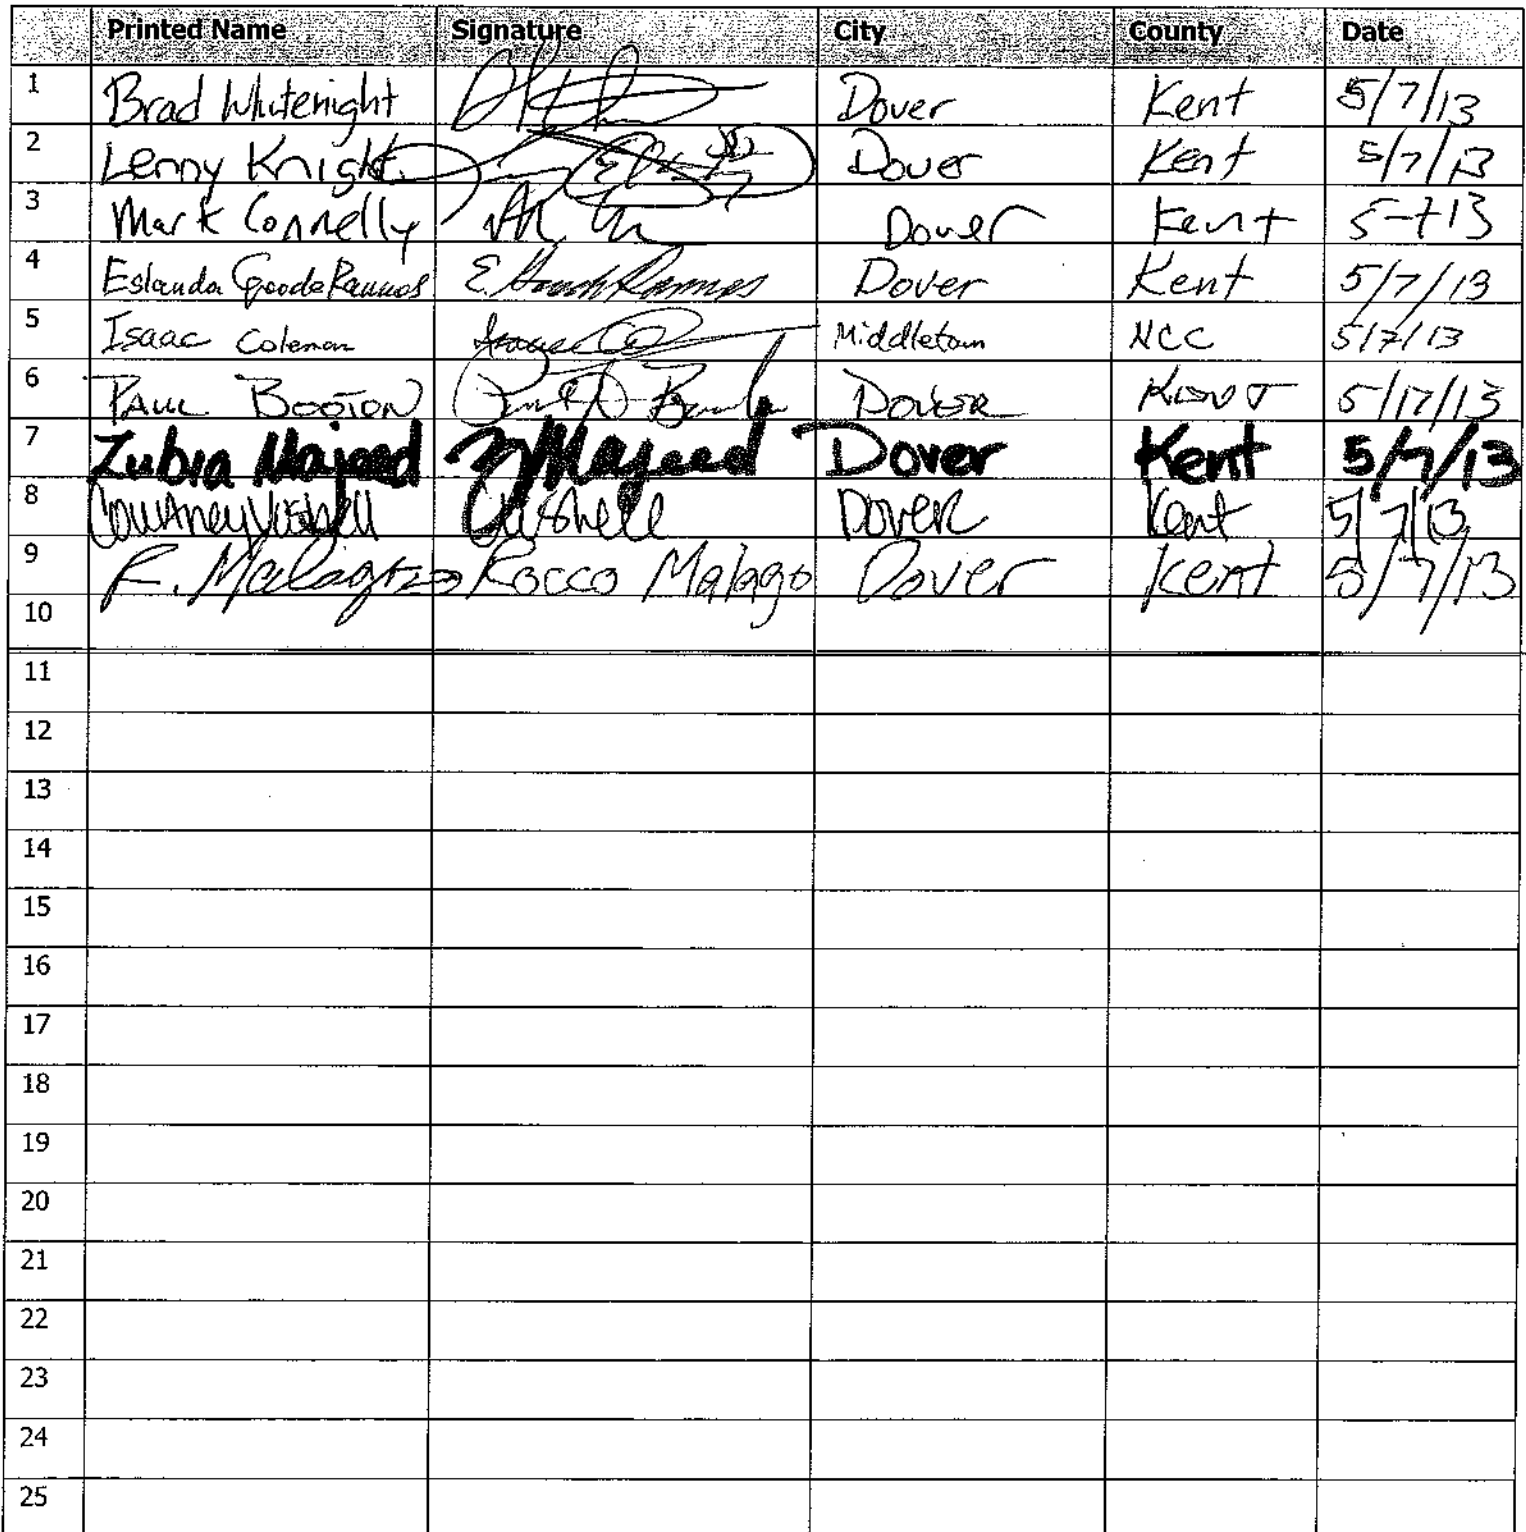 Printed Name Signature City County Date
1 Brad Whitenight Dover Kent 5/7/13
2 Lenny Knight Dover Kent 5/7/13
3 Mark Connelly Dover Kent 5-7 13
4 Eslanda Goode Ramos E. Goode Ramos Dover Kent 5/7/13
5 Isaac Coleman Middletown NCC 5/7/13
6 PAUL BOOTON DOVER KENT 5/17/13
7 Zubia Majeed Z Majeed Dover Kent 5/7/13
8 Courtney Dover Kent 5/7/13
9 R. Malago Rocco Malago Dover Kent 5/7/13
10
11
12
13
14
15
16
17
18
19
20
21
22
23
24
25